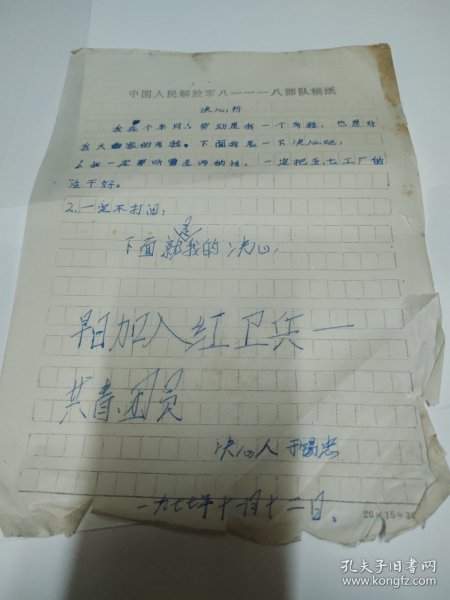 中国人民解放军八一一一八部队稿纸
决心书
我在个半月的劳动是我一个考验,也是对
我大的考验,下面我表一下决心吧:
1.我一定要听老师的话,一定把五七工厂的
活干好。
2.一定不打闹;
下面就是我的决心
早日加入红卫兵一
共青团员
决心人 于忠
一九七七年十一月十二日。
20×15=30
孔夫子旧书网
www.kongfz.com